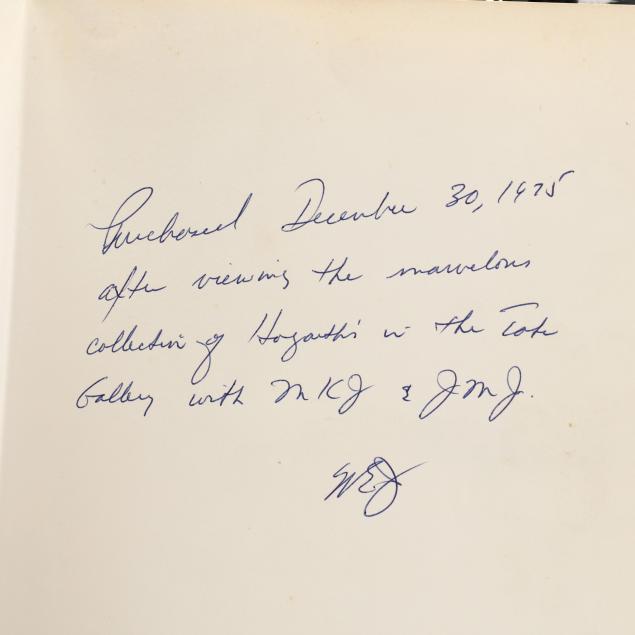 Purchased December 30, 1975
after viewing the marvelous
collection of Hogarth's in the Tate
Gallery with MKJ & JMJ.
WEJ